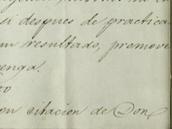 si despues de practica
un resultado, promove
venga.
to
con citacion de Don